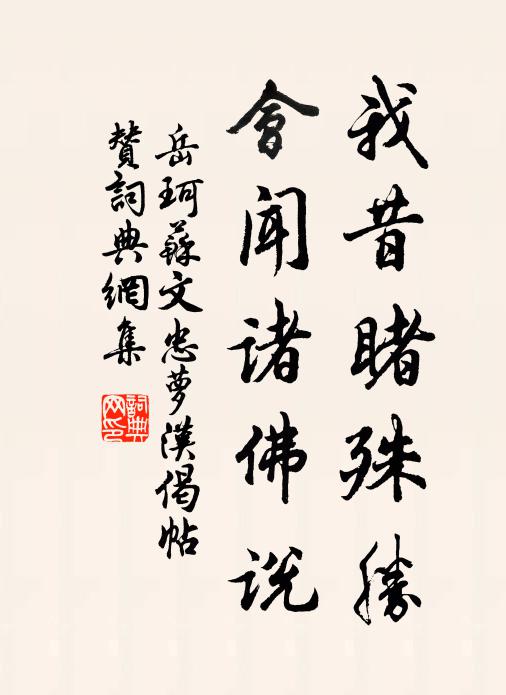 我昔睹殊勝
會聞諸佛説
岳珂蘇文忠夢漢偈帖
贊詞典網集
詞典
网印